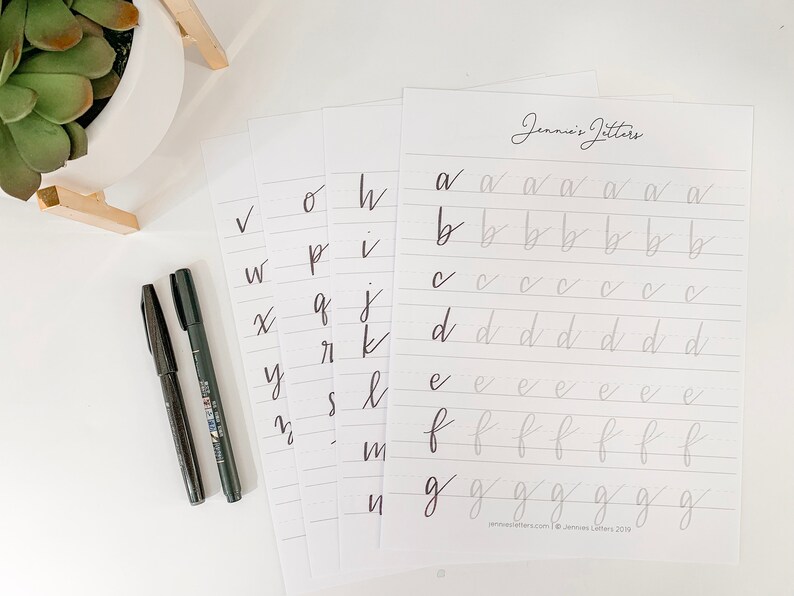 Jennie's Letters
a a a a a a a
b b b b b b b
c c c c c c c
d d d d d d d
e e e e e e e
f f f f f f f
g g g g g g g
jenniesletters.com | © Jennies Letters 2019
h
i
j
k
l
m
n
o
p
q
r
s
v
w
x
y
z